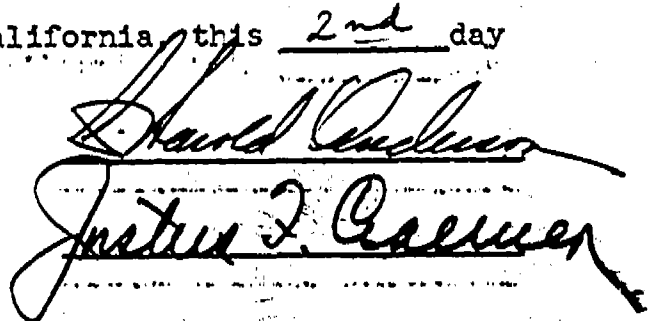 alifornia, this 2nd day
Harold Anderson
Justus F. Craemer